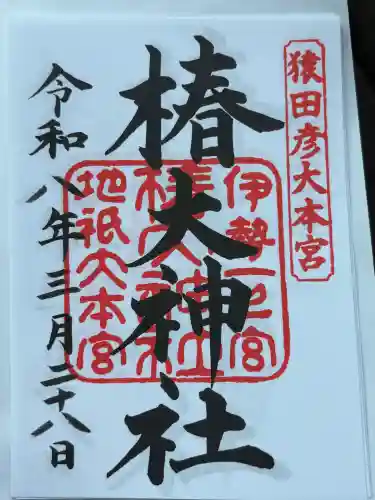 猿田彦大本宮
椿大神社
伊勢一之宮
椿大神社
地祇大本宮
令和八年三月二十八日